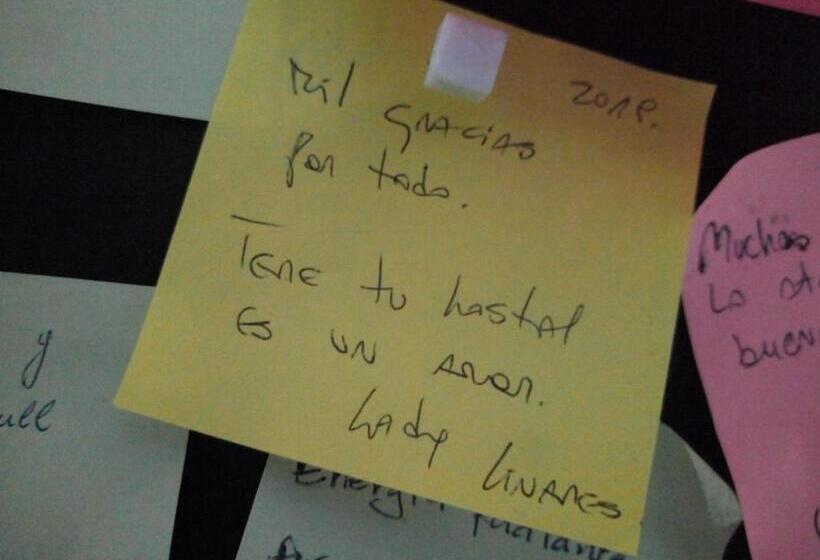 2018.
Mil
Gracias
Por todo.
Tene tu hostal
Es un amor.
Lady Linares
Muchas
La
buen
y
ull
Energia